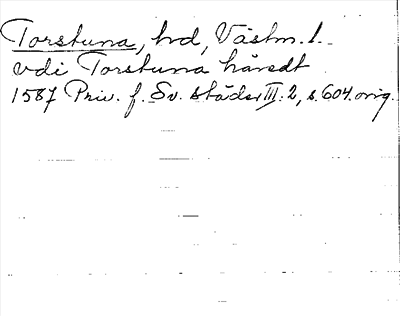 Torstuna, hd, Västm. l.
vdi Torstuna häredt
1587 Priv. f. Sv. städer III:2, s. 604. orig.